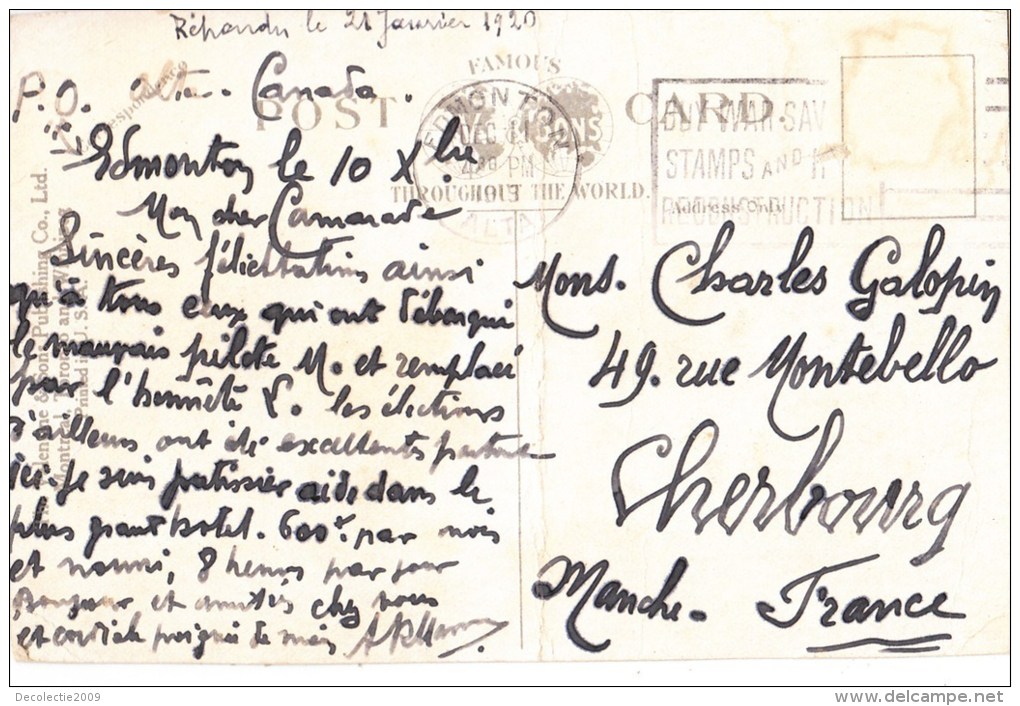 Répondu le 21 Janvier 1920
P.O. Alta. Canada.
Edmonton le 10 Xbre
Mon cher Camarade
Sincères félicitations ainsi
qu'à tous ceux qui ont débarqué
le mauvais pilote M. et remplacé
par l'honnête L. les élections
d'ailleurs ont été excellentes partout
ici. Je suis patissier aide dans le
plus grand hotel. 600f. par mois
et nourri, 8 heures par jour
Bonjour et amitiés chez vous
et cordiale poignée de main
Mons. Charles Galopin
49. rue Montebello
Cherbourg
Manche. France
FAMOUS
POST CARD.
THROUGHOUT THE WORLD.
Address Only
EDMONTON
DEC
4 30 PM
ALTA
BUY WAR SAV
STAMPS AND H
RECONSTRUCTION
Valentine & Sons Publishing Co., Ltd.
Montreal, Toronto and Winnipeg
Printed in U.S.A.
Decolectie2009
www.delcampe.net